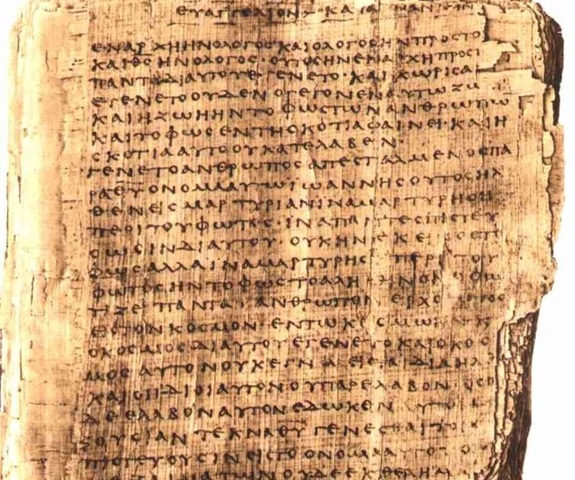 ΕΥΑΓΓΕΛΙΟΝ ΚΑΤΑ
ΕΝΑΡΧΗΗΝΟΛΟΓΟΣΚΑΙΟΛΟΓΟΣΗΝΠΡΟΣΤΟ
ΚΑΙΘΣΗΝΟΛΟΓΟΣ·ΟΥΤΟΣΗΝΕΝΑΡΧΗΠΡΟΣ
ΠΑΝΤΑΔΙΑΥΤΟΥΕΓΕΝΕΤΟ·ΚΑΙΧΩΡΙΣΑΥ
ΕΓΕΝΕΤΟΟΥΔΕΝΟΓΕΓΟΝΕΝΑΥΤΩΖΩ
ΚΑΙΗΖΩΗΗΝΤΟΦΩΣΤΩΝΑΝΘΡΩΠΩ
ΚΑΙΤΟΦΩΣΕΝΤΗΣΚΟΤΙΑΦΑΙΝΕΙ·ΚΑΙΗ
ΣΚΟΤΙΑΑΥΤΟΟΥΚΑΤΕΛΑΒΕΝ
ΓΕΝΕΤΟΑΝΘΡΩΠΟΣΑΠΕΣΤΑΛΜΕΝΟΣΠΑ
ΡΑΘΥΟΝΟΜΑΑΥΤΩΙΩΑΝΝΗΣΟΥΤΟΣΗΛ
ΘΕΝΕΙΣΜΑΡΤΥΡΙΑΝΙΝΑΜΑΡΤΥΡΗΣΗ
ΠΕΡΙΤΟΥΦΩΤΟΣ·ΙΝΑΠΑΝΤΕΣΠΙΣΤΕΥ
ΣΩΣΙΝΔΙΑΥΤΟΥ·ΟΥΚΗΝΕΚΕΙΝΟΣΤ
ΦΩΣΑΛΛΑΙΝΑΜΑΡΤΥΡΗΣΗΠΕΡΙΤΟΥ
ΦΩΤΟΣΗΝΤΟΦΩΣΤΟΑΛΗΘΙΝΟΝΟΦΩ
ΤΙΖΕΙΠΑΝΤΑΑΝΘΡΩΠΟΝΕΡΧΟ
ΕΙΣΤΟΝΚΟΣΜΟΝ·ΕΝΤΩΚΟΣΜΩΗΝ
ΟΚΟΣΜΟΣΔΙΑΥΤΟΥΕΓΕΝΕΤΟΚΑΙΟΚΟΣ
ΜΟΣΑΥΤΟΝΟΥΚΕΓΝΩΕΙΣΤΑΙΔΙΑΗΛΘ
ΚΑΙΟΙΙΔΙΟΙΑΥΤΟΝΟΥΠΑΡΕΛΑΒΟΝ
ΔΕΕΛΑΒΟΝΑΥΤΟΝΕΔΩΚΕΝΑΥΤΟΙ
ΖΟΥΣΙΑΝΤΕΚΝΑΘΥΓΕΝΕΣΘΑΙΤΟΙ
ΠΙΣΤΕΥΟΥΣΙΝΕΙΣΤΟΟΝΟΜΑΑΥΤΟΥ
ΟΥΔΕΕΚΘΕΛΗΜ